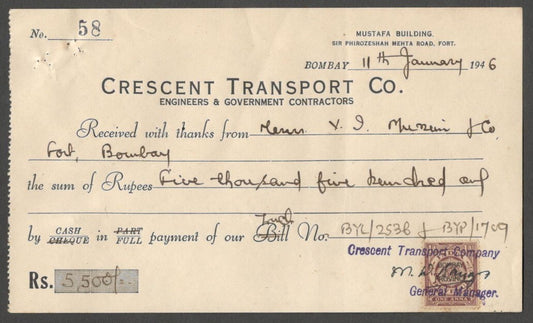 No. 58
MUSTAFA BUILDING.
SIR PHIROZESHAH MEHTA ROAD, FORT.
BOMBAY 11th January 1946
CRESCENT TRANSPORT CO.
ENGINEERS & GOVERNMENT CONTRACTORS
Received with thanks from Messrs & Co
Fort, Bombay
the sum of Rupees Five thousand five hundred only
by CASH CHEQUE in PART FULL payment of our Truck Bill No. BYL/2538 & BYP/1709
Rs. 5,500/-
Crescent Transport Company
General Manager.
ONE ANNA